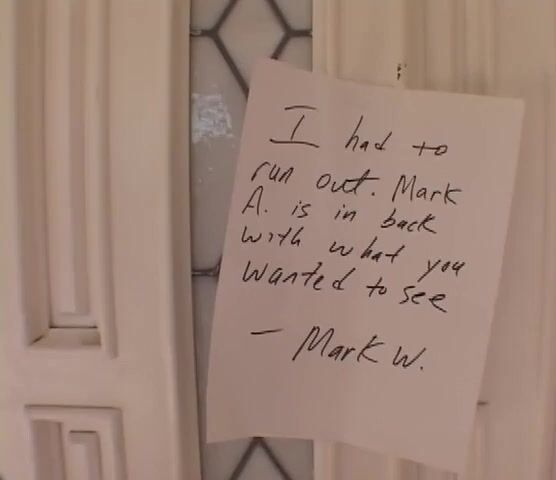 I had to
run out. Mark
A. is in back
with what you
wanted to see
— Mark W.